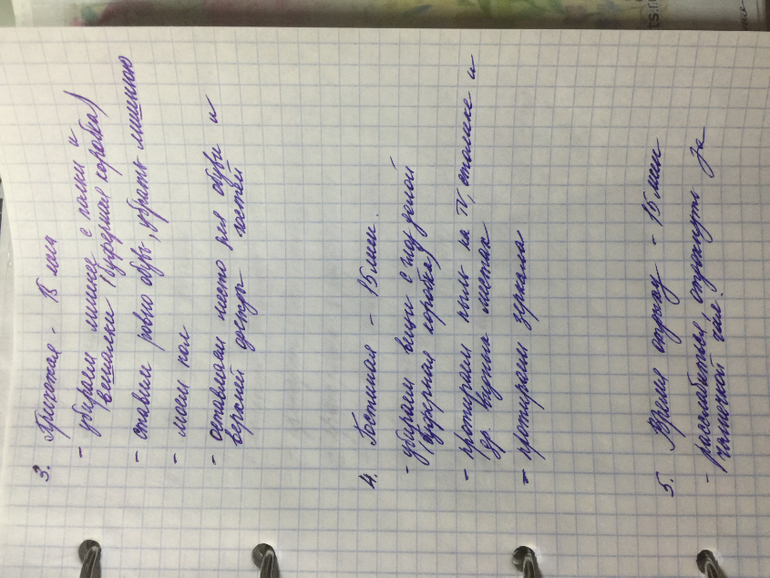 3. Прихожая - 15 мин
- убираем лишнее с полки и
вешалки (сюрпризная коробка)
- ставим ровно обувь, убрать лишнюю
- моем пол
- оставляем место для обуви и
верхней одежды гостей
4. Гостиная - 15 мин.
- убираем вещи с под
коробка)
- протираем пыль на TV, столике и
др. местах
- протираем зеркала
5. Время отдыху - 15 мин
- расслабиться, отдохнуть за
чашечкой чая.